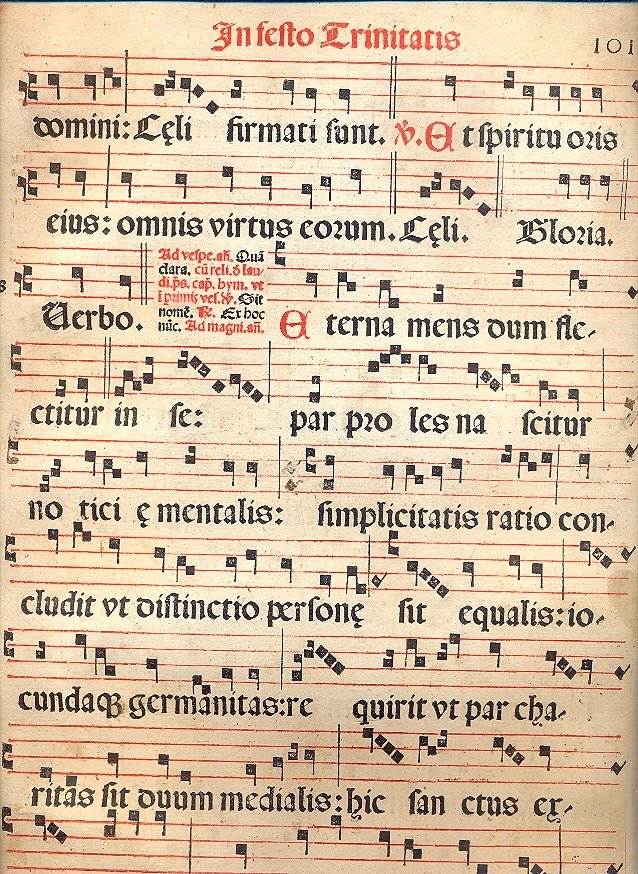 In festo Trinitatis
101
domini: Cęli firmati sunt. ℣. Et spiritu oris
eius: omnis virtus eorum. Cęli. Gloria.
Uerbo.
Ad vespe. añ. Quã
clara. cũ reli. ð lau-
di. p̃s. cap̃. hym. vt
ĩ primis ves. ℣. Sit
nomẽ. ℟. Ex hoc
nũc. Ad magni. añ.
Eterna mens dum fle-
ctitur in se: par pro les na scitur
no tici ę mentalis: simplicitatis ratio con-
cludit vt distinctio personę sit equalis: io-
cundaqꝫ germanitas: re quirit vt par cha-
ritas sit duum medialis: hic san ctus ex-